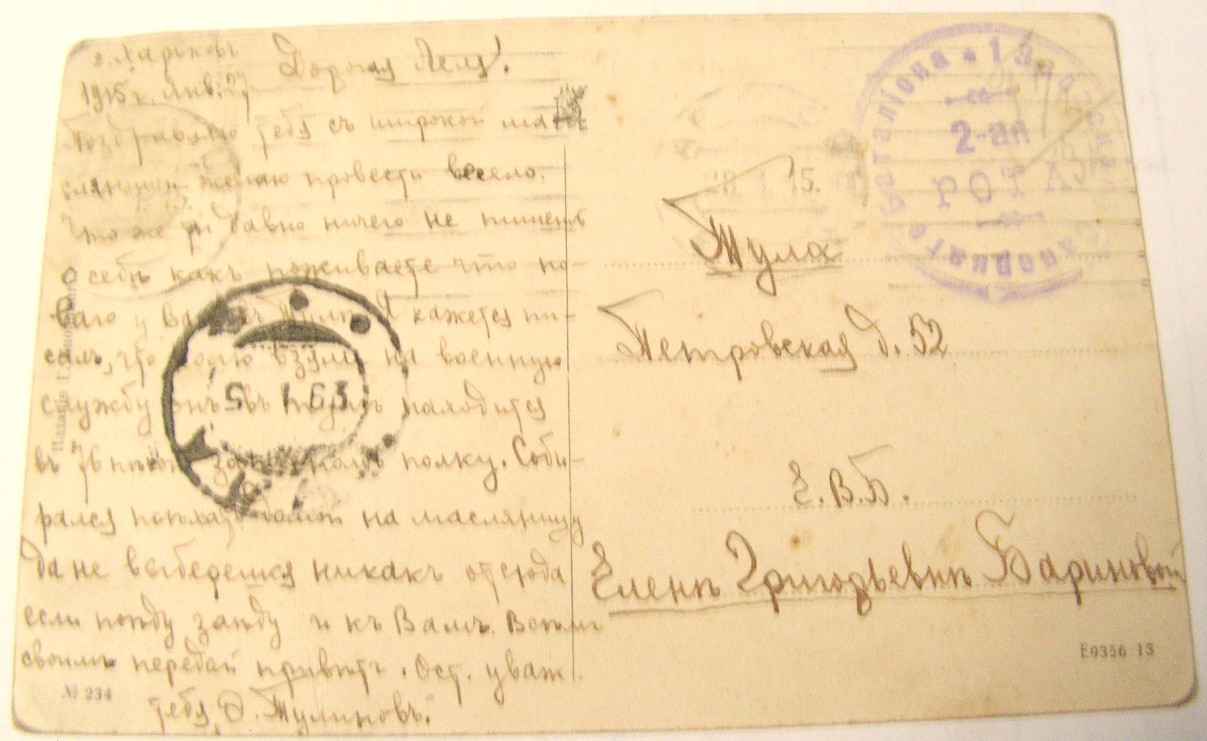 г. Харьковъ
1915 г. Янв. 27
Дорогая Леля!
Поздравляю тебя съ широкой мас-
ляницей желаю провести весело.
Что же ты давно ничего не пишешь
о себѣ какъ поживаете что но-
ваго у Васъ въ Тулѣ. Я кажется пи-
салъ, что взяли на военную
службу онъ въ находится
въ 76 полку. Соби-
рался поѣхать домой на масляницу
да не выберешься никакъ отсюда
если поѣду заѣду и къ Вамъ. Всѣмъ
своимъ передай привѣтъ. Ост. уваж.
тебя Тулиновъ.
№ 234
Баталіона * 13-го Сапернаго
2-ая
РОТА
28 1 15.
Тула
Петровская д. 52
Е. В. Б.
Еленѣ Григорьевнѣ Бариновой
E9356 13